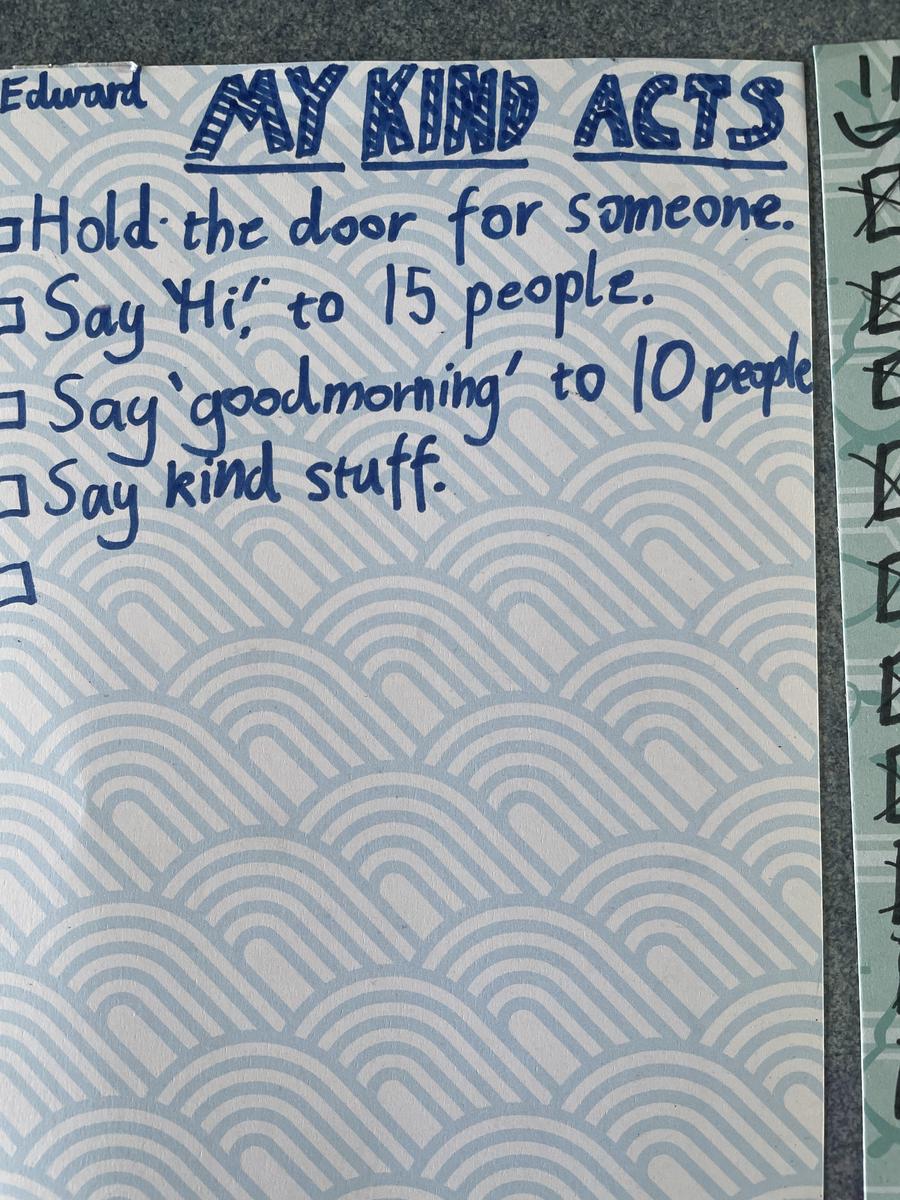 Edward
MY KIND ACTS
Hold the door for someone.
Say 'Hi!' to 15 people.
Say 'goodmorning' to 10 people
Say kind stuff.